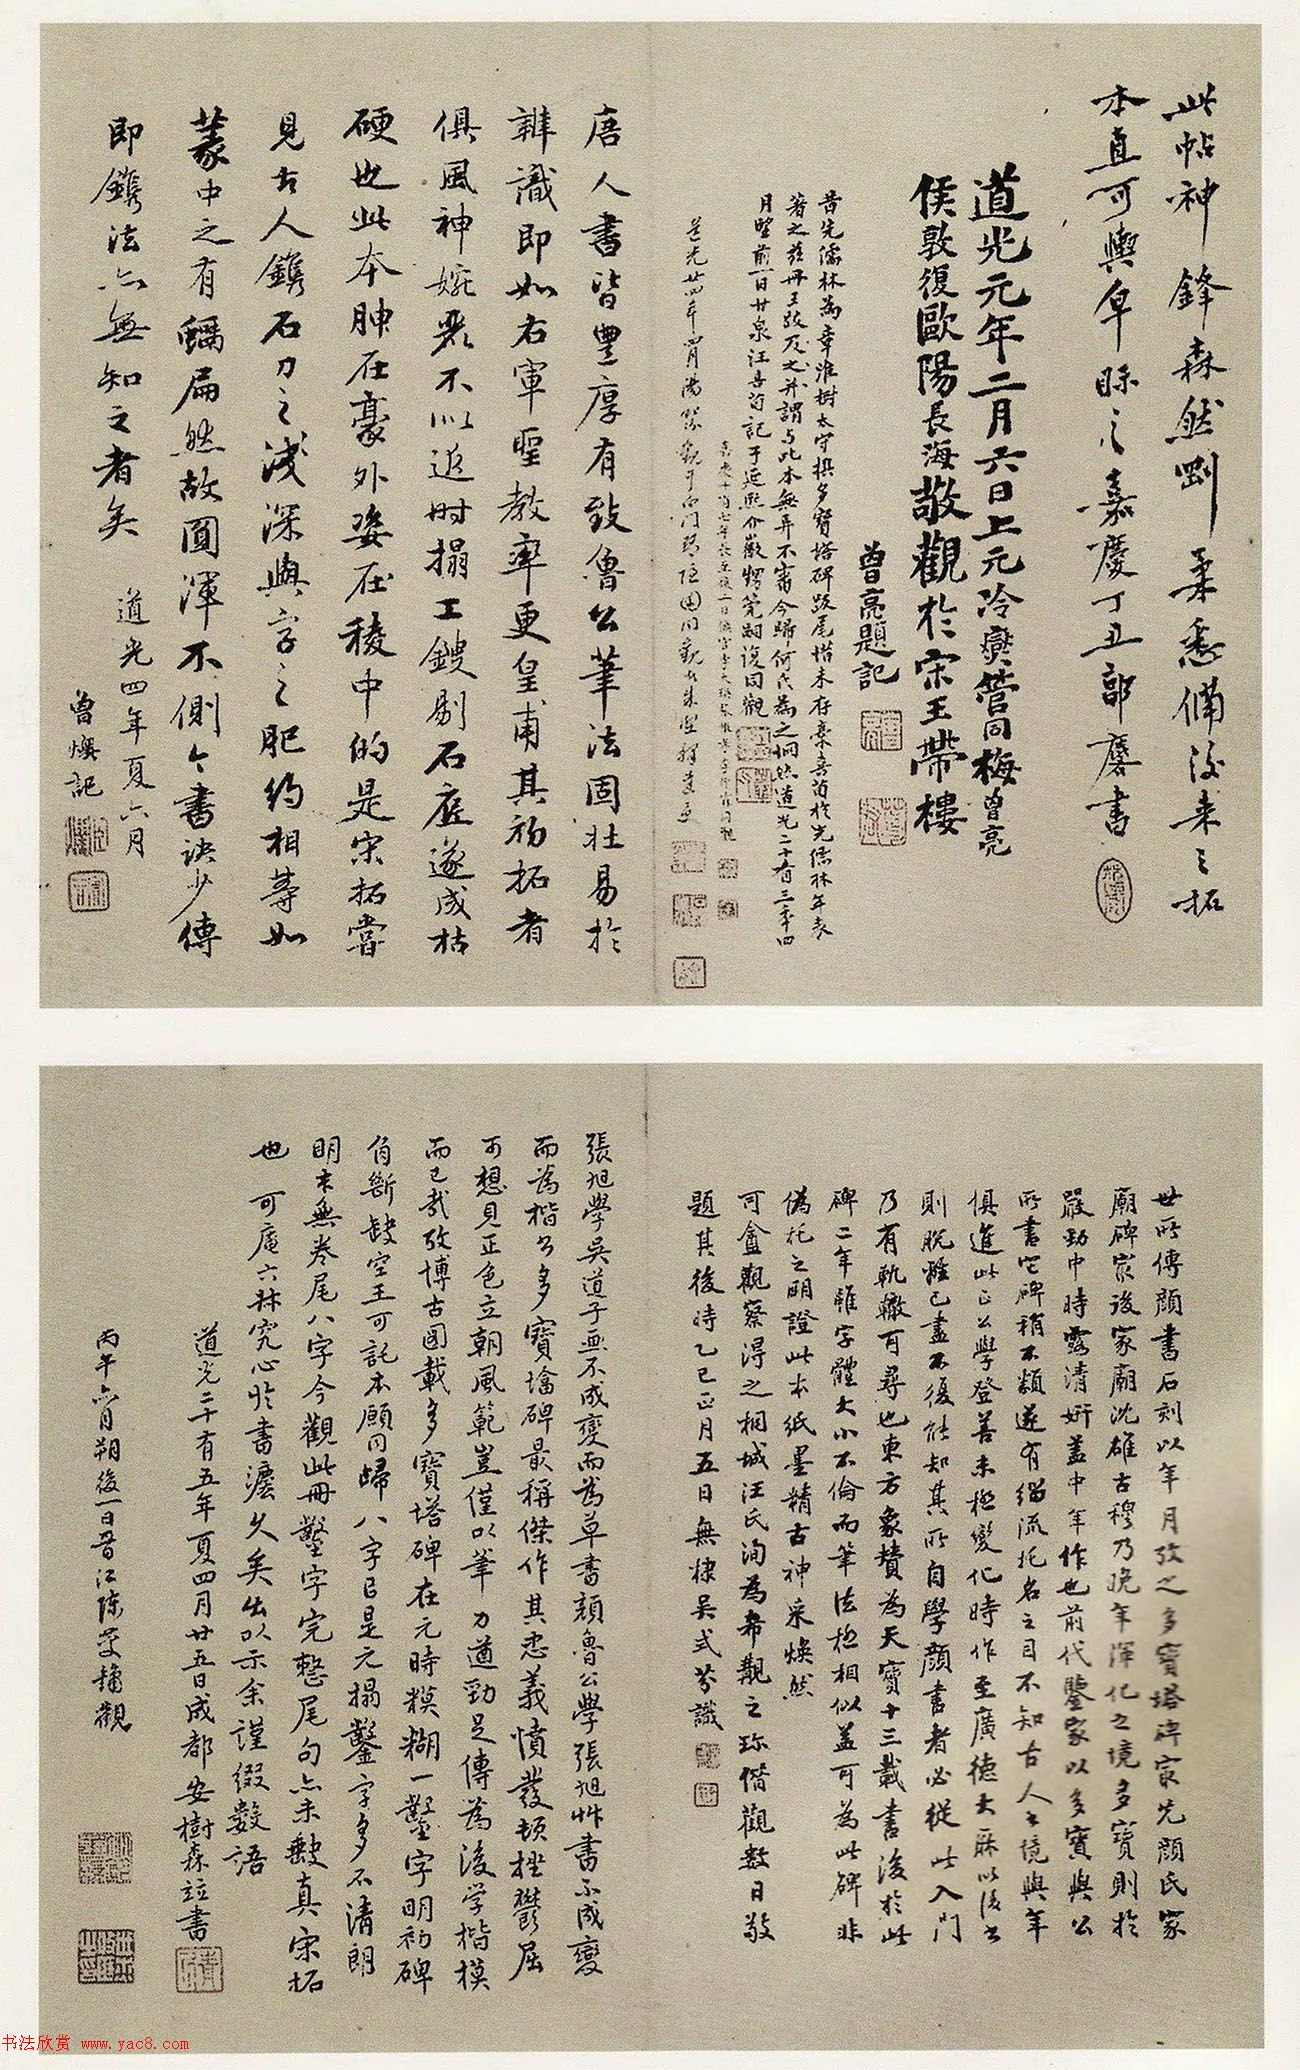 此帖神鋒森然剛柔悉備後來之拓
本直可輿皁眎之嘉慶丁丑郭麐書
道光元年二月六日上元冷爕管同梅曾亮
侯敦復歐陽長海敬觀於宋王帶樓
曾亮題記
昔先儒林為章淮樹太守撰多寶塔碑跋尾惜未存稾喜荀於先儒林年表
著之茲冊王跋及之并謂与此本無弄不甯今歸何氏為之惘然道光二十有三年四
月望前一日甘泉汪喜荀記于延熙介徽甥筦嗣復同觀
唐人書皆豐厚有致魯公筆法固壯易於
辨識即如右軍聖教率更皇甫其初拓者
俱風神婉麗不似近時搨工鎪剔石底遂成枯
硬也此本腴在豪外姿在稜中的是宋拓嘗
見古人鐫石刀之淺深與字之肥約相等如
篆中之有蠣扁然故圓渾不側今書訣少傳
即鐫法亦無知之者矣
道光四年夏六月
曾燠記
世所傳顏書石刻以年月攷之多寶塔碑冣先顏氏家
廟碑冣後家廟沈雄古穆乃晚年渾化之境多寶則於
嚴勁中時露清妍蓋中年作也前代鑒家以多寶與公
所書它碑稍不類遂有緇流托名之目不知古人之境與年
俱進此正公學登善未極變化時作至廣德大厤以後書
則脫雖已盡不復能知其所自學顏書者必從此入門
乃有軌轍可尋也東方象贊為天寶十三載書後於此
碑二年雖字體大小不倫而筆法極相似益可為此碑非
偽托之明證此本紙墨精古神采煥然
可盦觀察得之桐城汪氏洵為希覯之珎借觀數日敬
題其後時乙巳正月五日無棣吳式芬識
張旭學吳道子画不成變而為草書顏魯公學張旭艸書不成變
而為楷公多寶墖碑最稱傑作其忠義憤發頓挫鬱屈
可想見正色立朝風範豈僅以筆力遒勁足傳為後学楷模
而已哉攷博古圖載多寶塔碑在元時糢糊一鑿字明初碑
角斷缺空王可託本願同歸八字已是元搨鑿字多不清朗
明末無卷尾八字今觀此冊鑿字完整尾句亦未缺真宋拓
也可庵六林究心於書灋久矣出以示余謹綴數語
道光二十有五年夏四月廿五日成都安樹森竝書
丙午六月朔後一日晉江陳慶鏞觀
书法欣赏 www.yac8.com